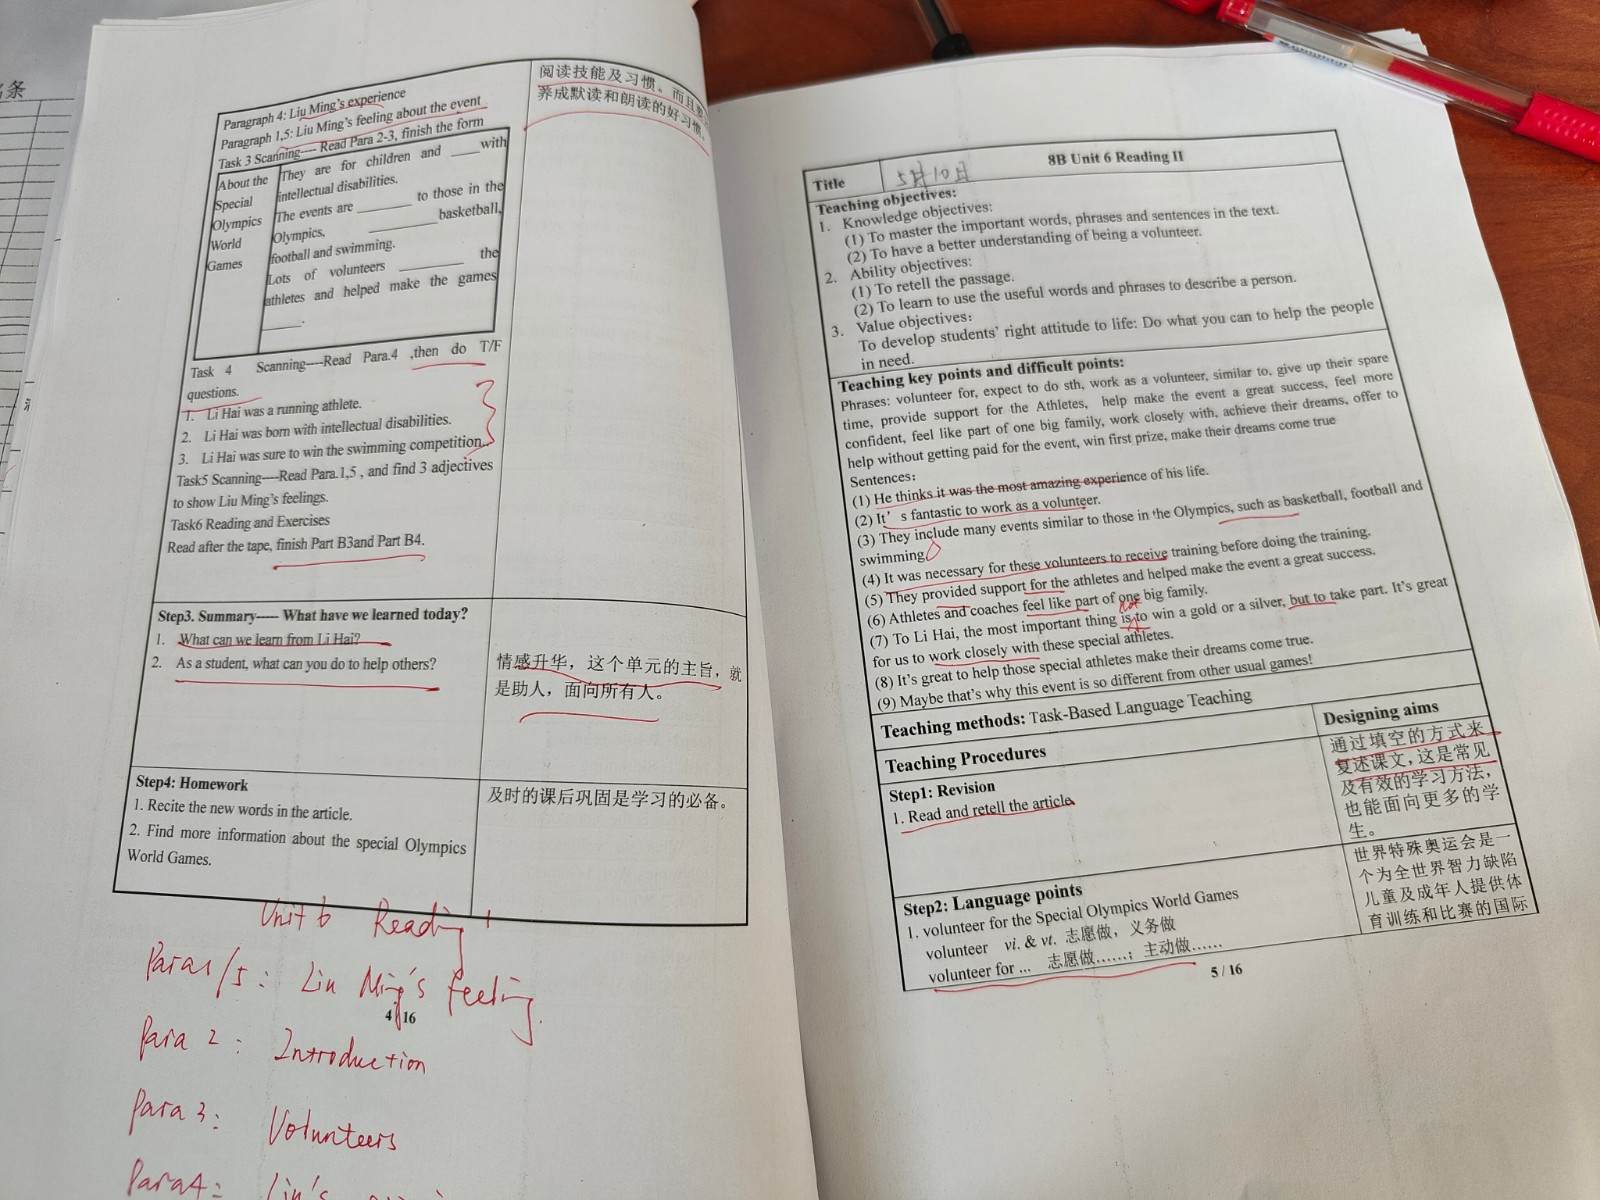 名条
Paragraph 4: Liu Ming's experience
Paragraph 1,5: Liu Ming's feeling about the event
Task 3 Scanning---- Read Para 2-3, finish the form
About the
Special
Olympics
World
Games
They are for children and ___ with
intellectual disabilities.
The events are _______ to those in the
Olympics, _________ basketball,
football and swimming.
Lots of volunteers ________ the
athletes and helped make the games
_____.
Task 4 Scanning----Read Para.4 ,then do T/F
questions.
1. Li Hai was a running athlete.
2. Li Hai was born with intellectual disabilities.
3. Li Hai was sure to win the swimming competition.
Task5 Scanning----Read Para.1,5 , and find 3 adjectives
to show Liu Ming's feelings.
Task6 Reading and Exercises
Read after the tape, finish Part B3and Part B4.
阅读技能及习惯。而且要
养成默读和朗读的好习惯。
Step3. Summary----- What have we learned today?
1. What can we learn from Li Hai?
2. As a student, what can you do to help others?
情感升华，这个单元的主旨，就
是助人，面向所有人。
Step4: Homework
1. Recite the new words in the article.
2. Find more information about the special Olympics
World Games.
及时的课后巩固是学习的必备。
Unit 6 Reading 1
Para1/5: Liu Ming's feeling.
4/16
Para 2: Introduction
Para 3: Volunteers
Para4:
Title
8B Unit 6 Reading II
5月10日
Teaching objectives:
1. Knowledge objectives:
(1) To master the important words, phrases and sentences in the text.
(2) To have a better understanding of being a volunteer.
2. Ability objectives:
(1) To retell the passage.
(2) To learn to use the useful words and phrases to describe a person.
3. Value objectives:
To develop students' right attitude to life: Do what you can to help the people
in need.
Teaching key points and difficult points:
Phrases: volunteer for, expect to do sth, work as a volunteer, similar to, give up their spare
time, provide support for the Athletes, help make the event a great success, feel more
confident, feel like part of one big family, work closely with, achieve their dreams, offer to
help without getting paid for the event, win first prize, make their dreams come true
Sentences:
(1) He thinks it was the most amazing experience of his life.
(2) It' s fantastic to work as a volunteer.
(3) They include many events similar to those in the Olympics, such as basketball, football and
swimming
(4) It was necessary for these volunteers to receive training before doing the training.
(5) They provided support for the athletes and helped make the event a great success.
(6) Athletes and coaches feel like part of one big family.
not
(7) To Li Hai, the most important thing is to win a gold or a silver, but to take part. It's great
for us to work closely with these special athletes.
(8) It's great to help those special athletes make their dreams come true.
(9) Maybe that's why this event is so different from other usual games!
Teaching methods: Task-Based Language Teaching
Teaching Procedures
Designing aims
Step1: Revision
1. Read and retell the article
通过填空的方式来
复述课文，这是常见
及有效的学习方法，
也能面向更多的学
生。
Step2: Language points
1. volunteer for the Special Olympics World Games
volunteer vi. & vt. 志愿做，义务做
volunteer for ... 志愿做……；主动做……
世界特殊奥运会是一
个为全世界智力缺陷
儿童及成年人提供体
育训练和比赛的国际
5 / 16